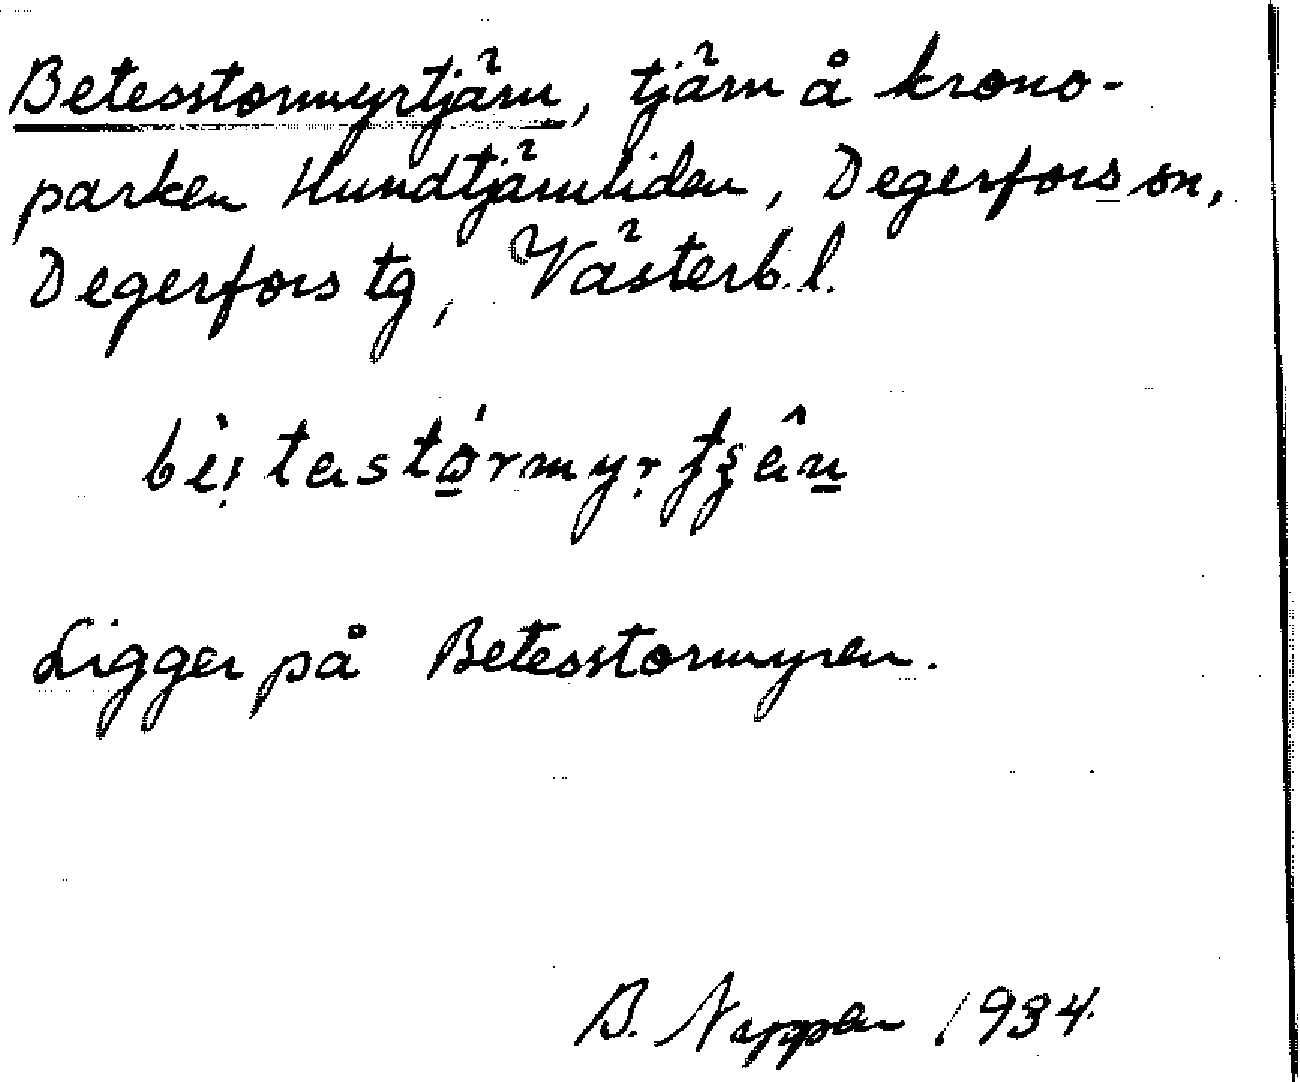 Betesstormyrtjärn, tjärn å krono-
parken Hundtjärnliden, Degerfors sn,
Degerfors tg, Västerb.l.
Ligger på Betesstormyren.
B. 1934.